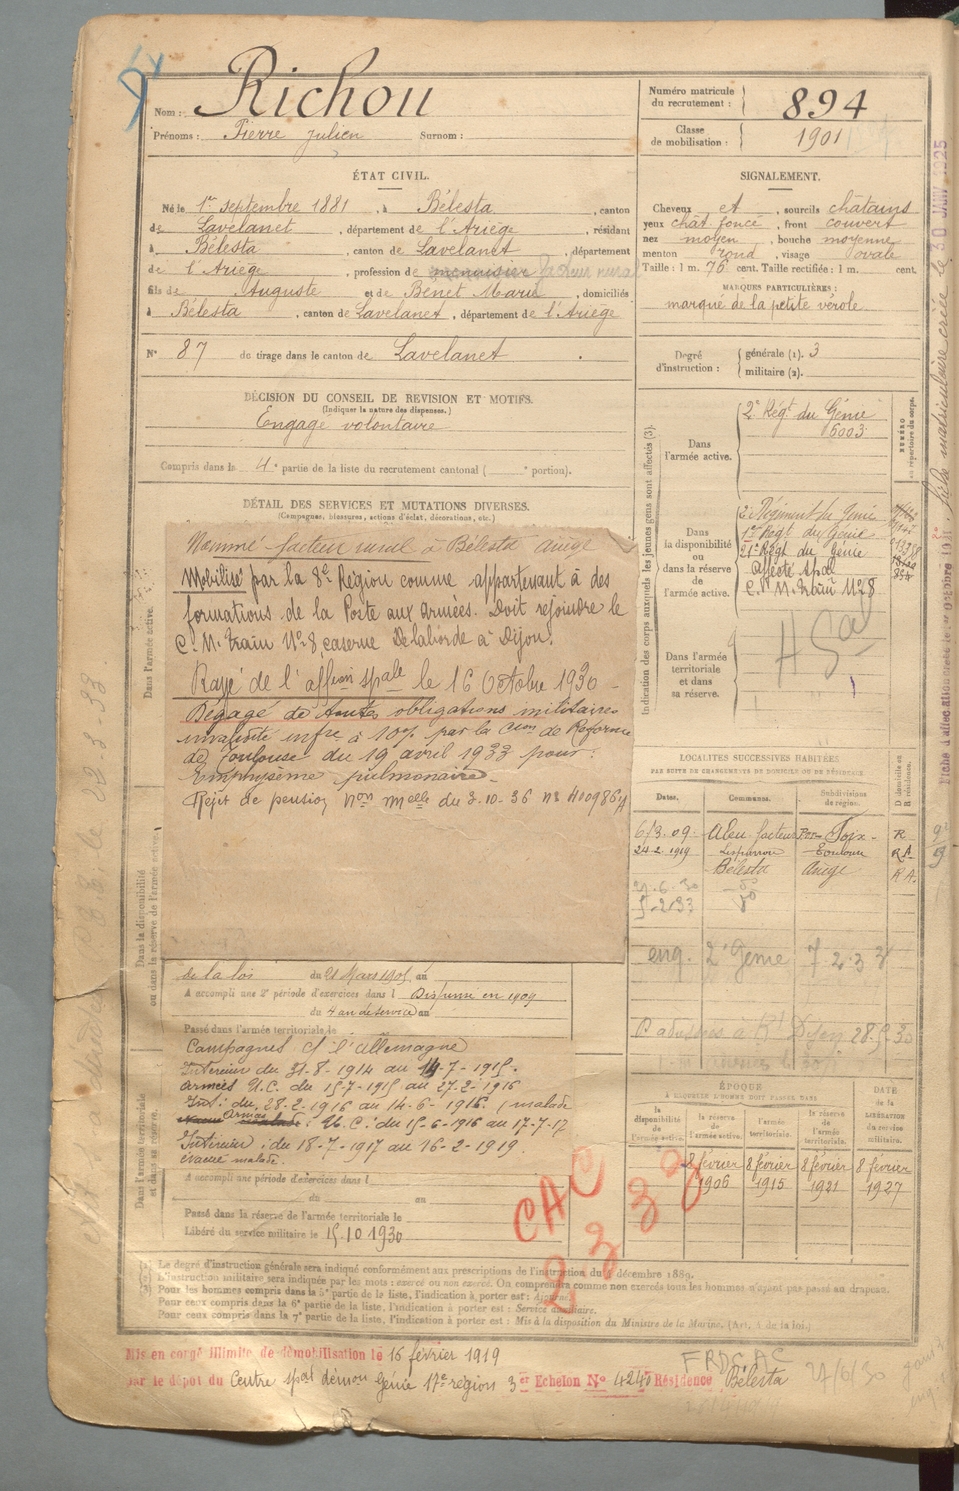 Nom : Richou
Prénoms : Pierre Julien Surnom :
Numéro matricule du recrutement : 894
Classe de mobilisation : 1901
ÉTAT CIVIL.
Né le 1er septembre 1881, à Bélesta, canton
de Lavelanet, département de l'Ariège, résidant
à Bélesta, canton de Lavelanet, département
de l'Ariège, profession de menuisier facteur rural
fils de Auguste et de Benet Marie, domiciliés
à Bélesta, canton de Lavelanet, département de l'Ariège
N° 87 du tirage dans le canton de Lavelanet.
SIGNALEMENT.
Cheveux et, sourcils châtains
yeux chât. foncé, front couvert
nez moyen, bouche moyenne
menton rond, visage ovale
Taille : 1 m. 76 cent. Taille rectifiée : 1 m. cent.
MARQUES PARTICULIÈRES :
marqué de la petite vérole
Degré d'instruction : générale (1). 3
militaire (2).
DÉCISION DU CONSEIL DE REVISION ET MOTIFS.
(Indiquer la nature des dispenses.)
Engagé volontaire
Compris dans la 4e partie de la liste du recrutement cantonal ( e portion).
DÉTAIL DES SERVICES ET MUTATIONS DIVERSES.
(Campagnes, blessures, actions d'éclat, décorations, etc.)
Nommé facteur rural à Bélesta Ariège
Mobilisé par la 8e Région comme appartenant à des
formations de la Poste aux armées. Doit rejoindre le
C. M. train N° 8 caserne Delaborde à Dijon.
Rayé de l'affion spale le 16 Octobre 1930
Dégagé de toutes obligations militaires
invalidité infre à 10% par la Cion de Réforme
de Toulouse du 19 avril 1933 pour :
Emphysème pulmonaire
Rejet de pension Non melle du 3.10.36 n° 400986 A
de la loi du 21 Mars 1905, au
A accompli une 2e période d'exercices dans l Dispensé en 1909
du 4 an de service au
Passé dans l'armée territoriale le
Campagnes c/ l'allemagne
Intérieur du 31-8-1914 au 14-7-1915.
armées U.C. du 15-7-1915 au 27-2-1916
Int. du 28-2-1916 au 14-6-1916. (malade
Armée : U.C. : du 15-6-1916 au 17-7-17
Intérieur : du 18-7-1917 au 16-2-1919.
évacué malade.
A accompli une période d'exercices dans l
du au
Passé dans la réserve de l'armée territoriale le
Libéré du service militaire le 15.10 1930
Indication des corps auxquels les jeunes gens sont affectés (3).
Dans l'armée active.
2e Régt du Génie
5003
NUMÉRO au répertoire du corps.
Dans la disponibilité ou dans la réserve de l'armée active.
2e Régiment du Génie
1er Régt du Génie
21e Régt du Génie
affecté spal
C. M. train N° 8
Dans l'armée territoriale et dans sa réserve.
LOCALITÉS SUCCESSIVES HABITÉES
PAR SUITE DE CHANGEMENTS DE DOMICILE OU DE RÉSIDENCE.
Dates. Communes. Subdivisions de région. D domicile ou R résidence.
6/3.09. Aleu facteur Foix R
24.2.1919 Toulon RA
Bélesta Ariège RA.
eng. 2e Génie 7 2.33
ÉPOQUE
À LAQUELLE L'HOMME DOIT PASSER DANS
la disponibilité de l'armée active.
la réserve de l'armée active. 8 février 1906
l'armée territoriale. 8 février 1915
la réserve de l'armée territoriale. 8 février 1921
DATE de la LIBÉRATION du service militaire. 8 février 1927
Dans l'armée active.
Dans la disponibilité ou dans la réserve de l'armée active.
Dans l'armée territoriale et dans sa réserve.
CAC
Le degré d'instruction générale sera indiqué conformément aux prescriptions de l'instruction du 4 décembre 1889.
L'instruction militaire sera indiquée par les mots : exercé ou non exercé. On comprendra comme non exercés tous les hommes n'ayant pas passé au drapeau.
Pour les hommes compris dans la 5e partie de la liste, l'indication à porter est : Ajourné.
Pour ceux compris dans la 6e partie de la liste, l'indication à porter est : Service auxiliaire.
Pour ceux compris dans la 7e partie de la liste, l'indication à porter est : Mis à la disposition du Ministre de la Marine. (Art. 4 de la loi.)
Mis en congé illimité de démobilisation le 16 février 1919
par le dépôt du Centre spal démon Génie 17e région 3er Echelon N° 4240 Résidence Bélesta
27/6/30